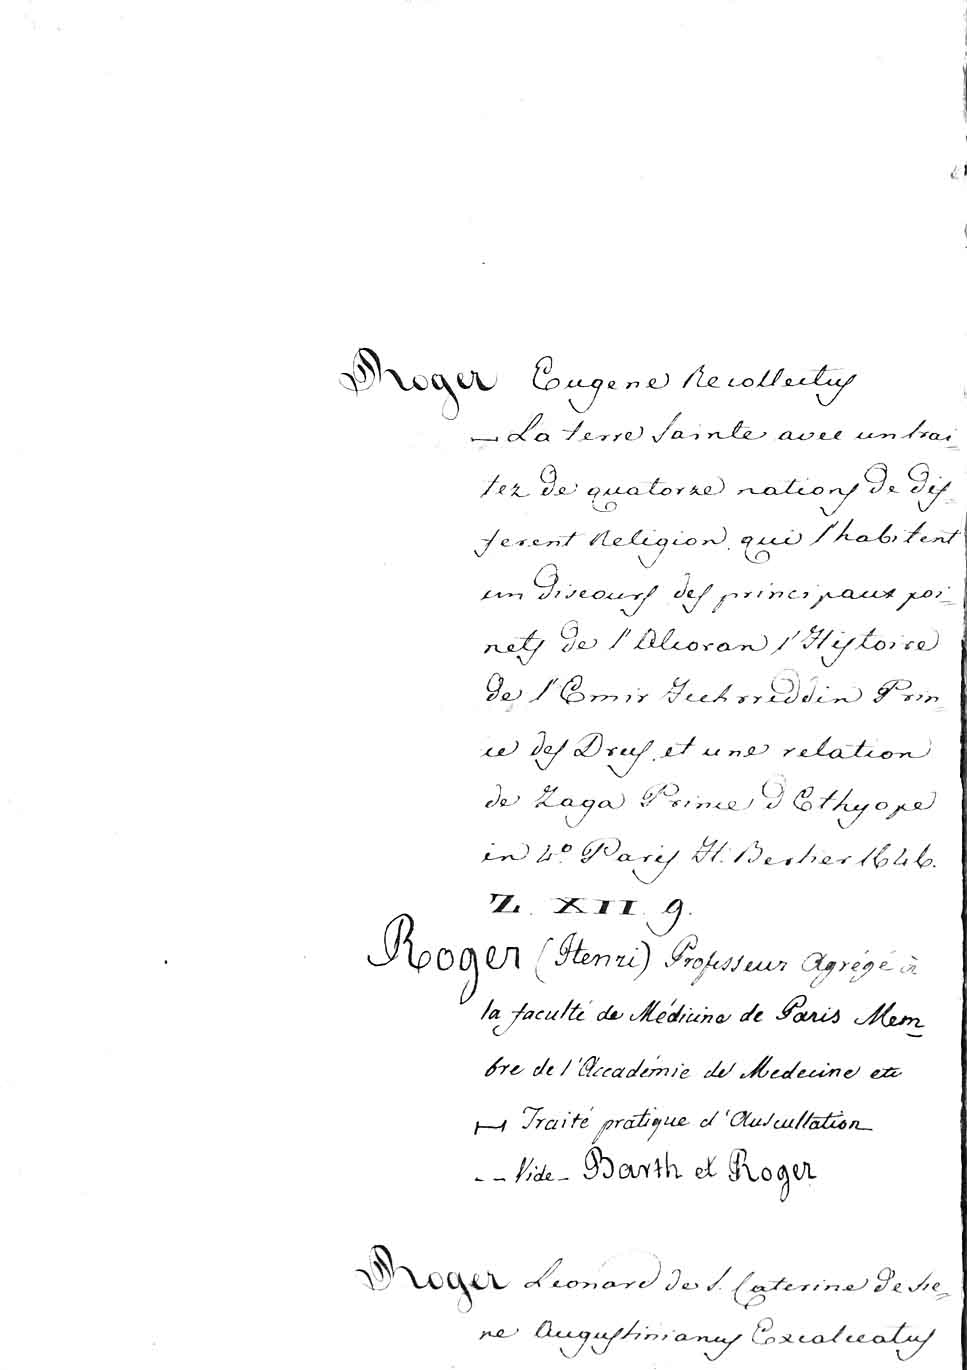 Roger Eugene Recollectus
— La terre Sainte avec un trai=
tez de quatorze nations de dif=
ferent Religion qui l'habitent
un discours des principaux poi=
nets de l'Alcoran l'Histoire
de l'Emir Prin=
ce des Drus et une relation
de Zaga Prince d'Ethyope
in 4.º Paris H. Bertier 1646.
Z. XII. 9.
Roger (Henri) Professeur Agrégé à
la faculté de Médicine de Paris Mem=
bre de l'Accadémie de Medecine etc
— Traité pratique d'Auscultation
-- Vide - Barth et Roger
Roger Leonard de S. Caterine de Sie=
ne Augustinianus Excalceatus